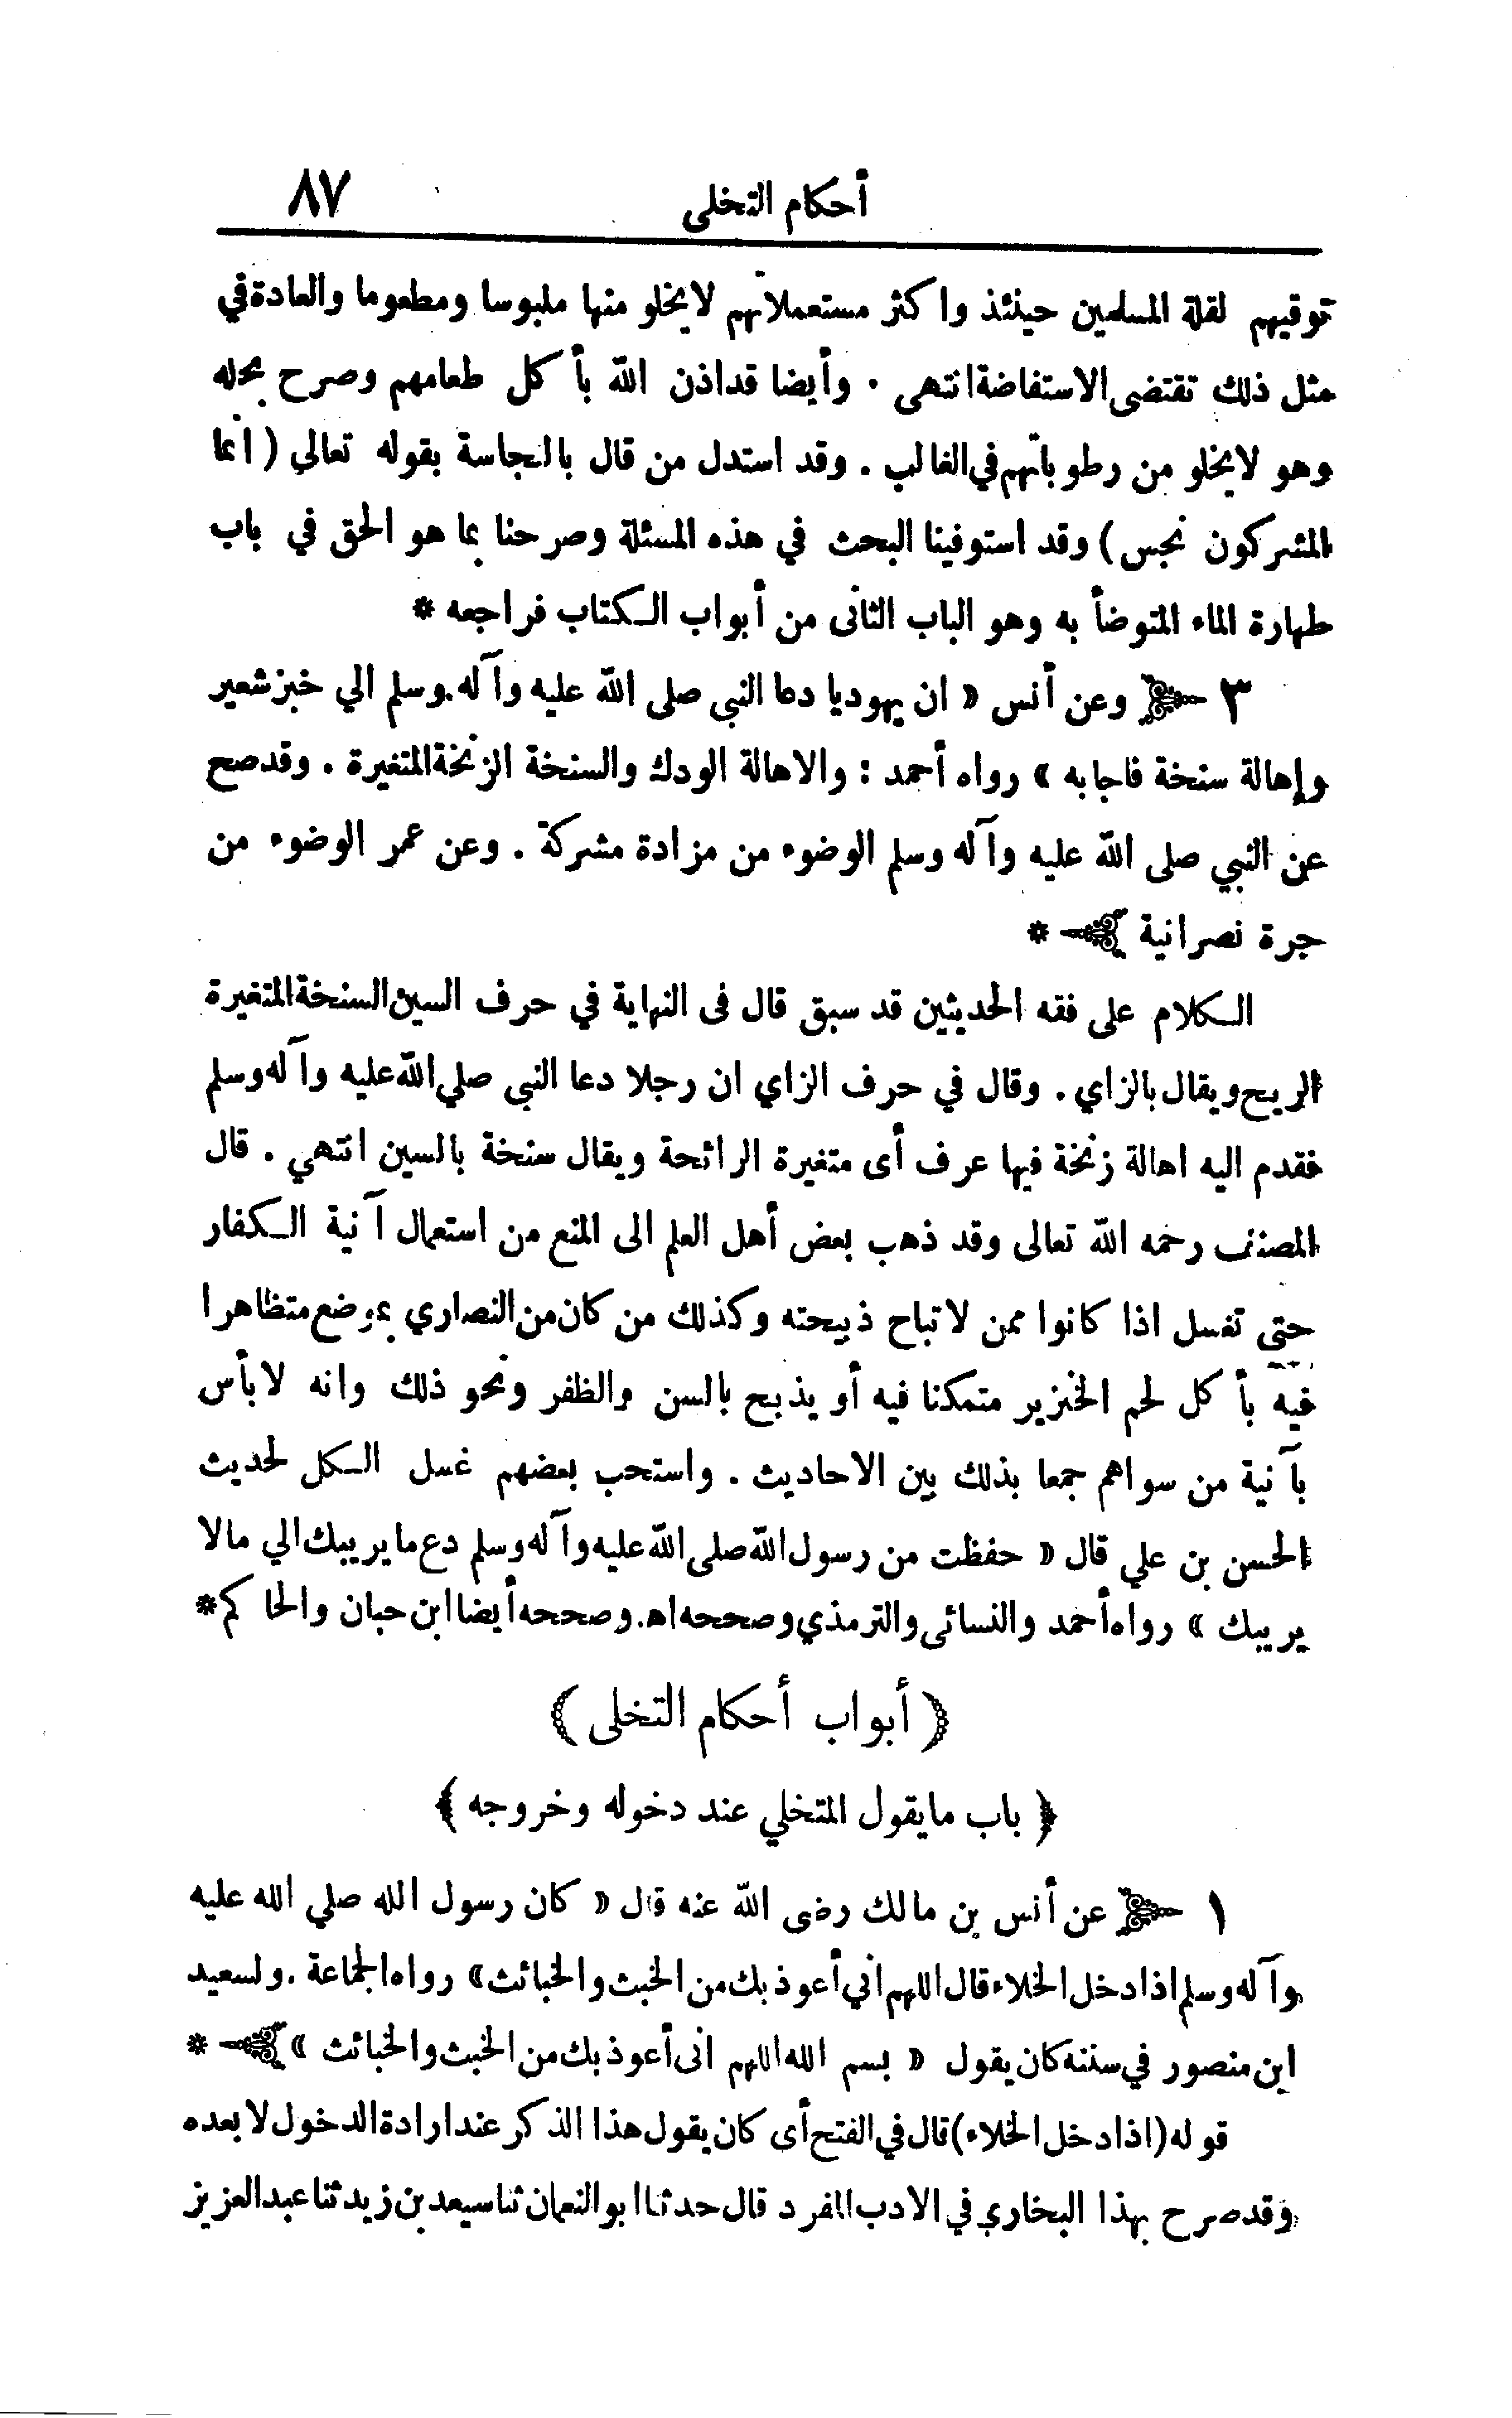 أحكام التخلى ٨٧
توقيهم لقلة المسلمين حينئذ واكثر مستعملاتهم لايخلو منها ملبوسا ومطعوما والعادة في
مثل ذلك تقتضى الاستفاضة انتهى . وأيضا قد اذن الله بأ كل طعامهم وصرح بحله
وهو لايخلو من رطوباتهم في الغالب . وقد استدل من قال بالنجاسة بقوله تعالي ( انما
المشركون نجس ) وقد استوفينا البحث في هذه المسئلة وصرحنا بما هو الحق في باب
طهارة الماء المتوضأ به وهو الباب الثانى من أبواب الكتاب فراجعه *
٣ وعن أنس « ان يهوديا دعا النبي صلى الله عليه وآله وسلم الي خبز شعير
وإهالة سنخة فاجابه » رواه أحمد : والاهالة الودك والسنخة الزنخة المتغيرة . وقد صح
عن النبي صلى الله عليه وآله وسلم الوضوء من مزادة مشركة . وعن عمر الوضوء من
جرة نصرانية *
الكلام على فقه الحديثين قد سبق قال فى النهاية في حرف السين السنخة المتغيرة
الريح ويقال بالزاي . وقال في حرف الزاي ان رجلا دعا النبي صلي الله عليه وآله وسلم
فقدم اليه اهالة زنخة فيها عرف أى متغيرة الرائحة ويقال سنخة بالسين انتهي . قال
المصنف رحمه الله تعالى وقد ذهب بعض أهل العلم الى المنع من استعمال آنية الكفار
حتى تغسل اذا كانوا ممن لاتباح ذبيحته وكذلك من كان من النصاري بموضع متظاهرا
فيه بأ كل لحم الخنزير متمكنا فيه أو يذبح بالسن والظفر ونحو ذلك وانه لابأس
بآنية من سواهم جمعا بذلك بين الاحاديث . واستحب بعضهم غسل الكل لحديث
الحسن بن علي قال « حفظت من رسول الله صلى الله عليه وآله وسلم دع مايريبك الي مالا
يريبك » رواه أحمد والنسائى والترمذي وصححه اه . وصححه أيضا ابن حبان والحاكم *
( أبواب أحكام التخلى )
﴿ باب مايقول المتخلي عند دخوله وخروجه ﴾
١ عن أنس بن مالك رضى الله عنه قال « كان رسول الله صلي الله عليه
وآله وسلم اذا دخل الخلاء قال اللهم اني أعوذ بك من الخبث والخبائث » رواه الجماعة . ولسعيد
ابن منصور في سننه كان يقول « بسم الله اللهم انى أعوذ بك من الخبث والخبائث » *
قوله ( اذا دخل الخلاء ) قال في الفتح أى كان يقول هذا الذكر عند ارادة الدخول لا بعده
وقد صرح بهذا البخاري في الادب المفرد قال حدثنا ابو النعمان ثنا سيعد بن زيد ثنا عبد العزيز